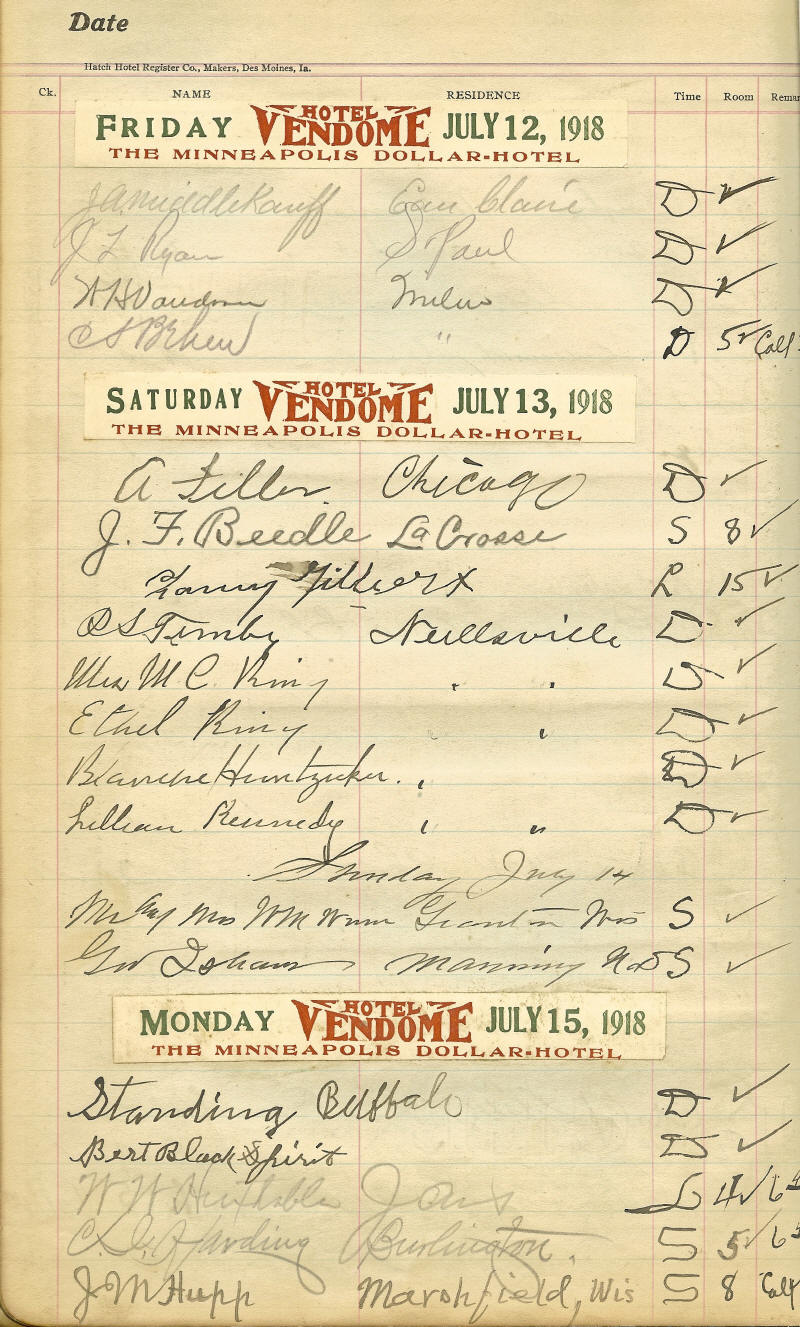 Date
Hatch Hotel Register Co., Makers, Des Moines, Ia.
Ck. NAME RESIDENCE Time Room Remar
FRIDAY HOTEL VENDOME JULY 12, 1918
THE MINNEAPOLIS DOLLAR-HOTEL
Eau Claire D ✓
J L Ryan S Paul D ✓
D ✓
" D 5 ✓ Call
SATURDAY HOTEL VENDOME JULY 13, 1918
THE MINNEAPOLIS DOLLAR-HOTEL
A Filler Chicago D ✓
J. F. Beedle La Crosse S 8 ✓
L 15 ✓
Neillsville D ✓
Mrs M C King " " D ✓
Ethel King " " D ✓
Blanche Huntzicker " D ✓
Lillian Kennedy " " D ✓
Sunday July 14
Mr Mrs Wm Granton Wis S ✓
Geo Isham Manning S ✓
MONDAY HOTEL VENDOME JULY 15, 1918
THE MINNEAPOLIS DOLLAR-HOTEL
Standing Buffalo D ✓
Bert Black Spirit D ✓
W W L 4 ✓ 6
Harding Burlington. S 5 ✓ 6
J M Hupp Marshfield, Wis S 8 Call